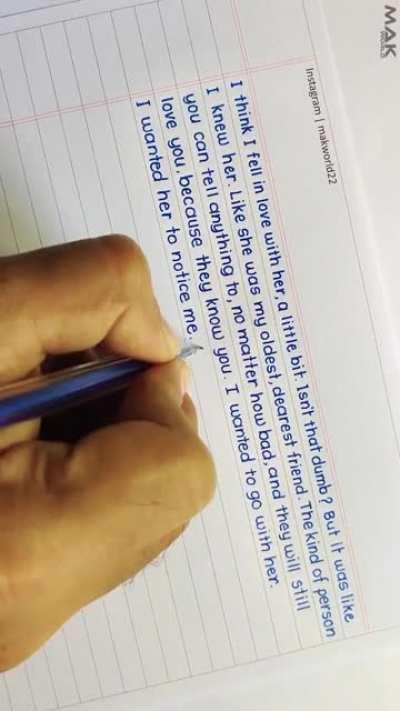 MAK
WORLD
Instagram | makworld22
I think I fell in love with her, a little bit. Isn't that dumb? But it was like
I knew her. Like she was my oldest, dearest friend. The kind of person
you can tell anything to, no matter how bad, and they will still
love you, because they know you. I wanted to go with her.
I wanted her to notice me.